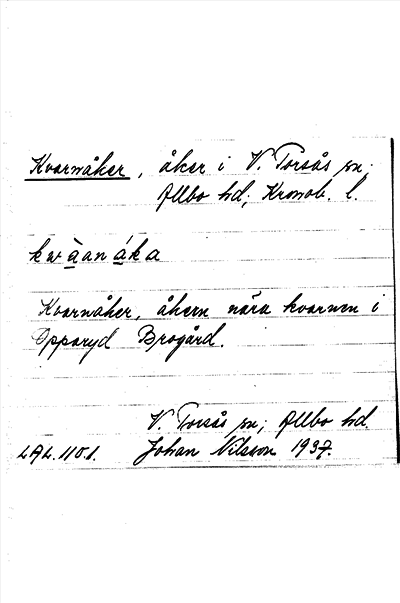 Kvarnåker, åker i V. Torsås sn;
Allbo hd; Kronob. l.
kwàanáka
Kvarnåker, åkern nära kvarnen i
Opparyd Brogård.
V. Torsås sn; Allbo hd.
LAL.1101. Johan Nilsson 1937.